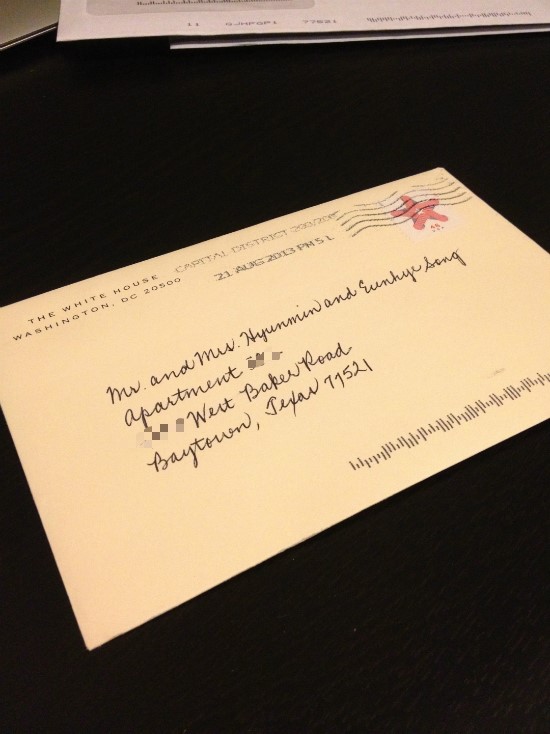 11 77521
THE WHITE HOUSE
WASHINGTON, DC 20500
CAPITAL DISTRICT 200
21 AUG 2013 PM 5 L
Mr. and Mrs. Hyunmin and Eunhye Song
Apartment
West Baker Road
Baytown, Texas 77521